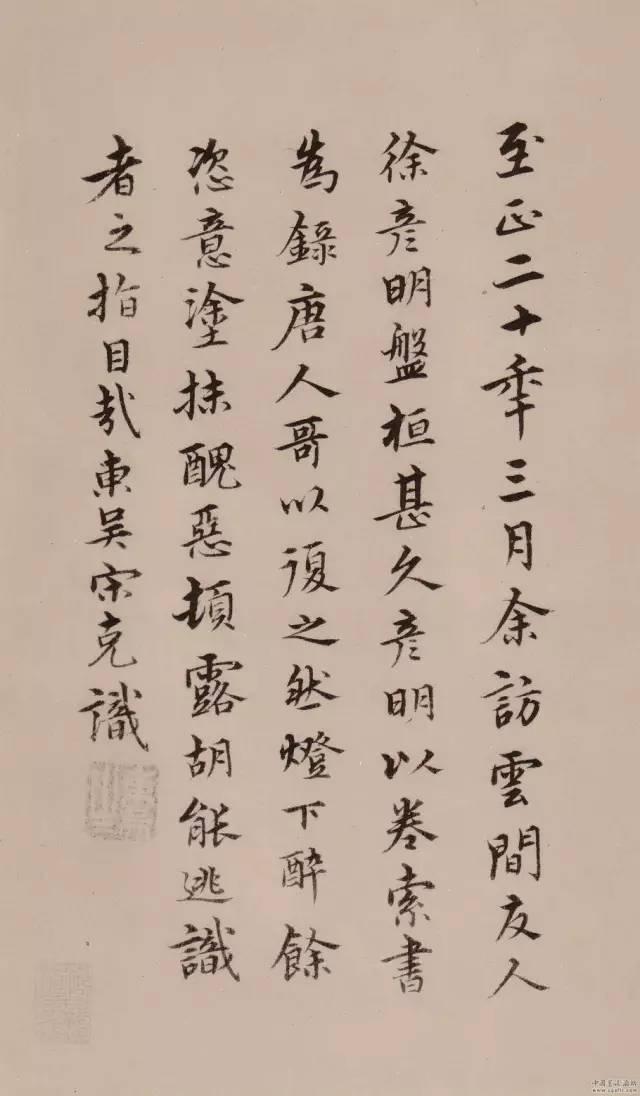 至正二十年三月余訪雲間友人
徐彦明盤桓甚久彦明以卷索書
為錄唐人哥以復之然燈下醉餘
恣意塗抹醜惡頓露胡能逃識
者之指目哉東吳宋克識